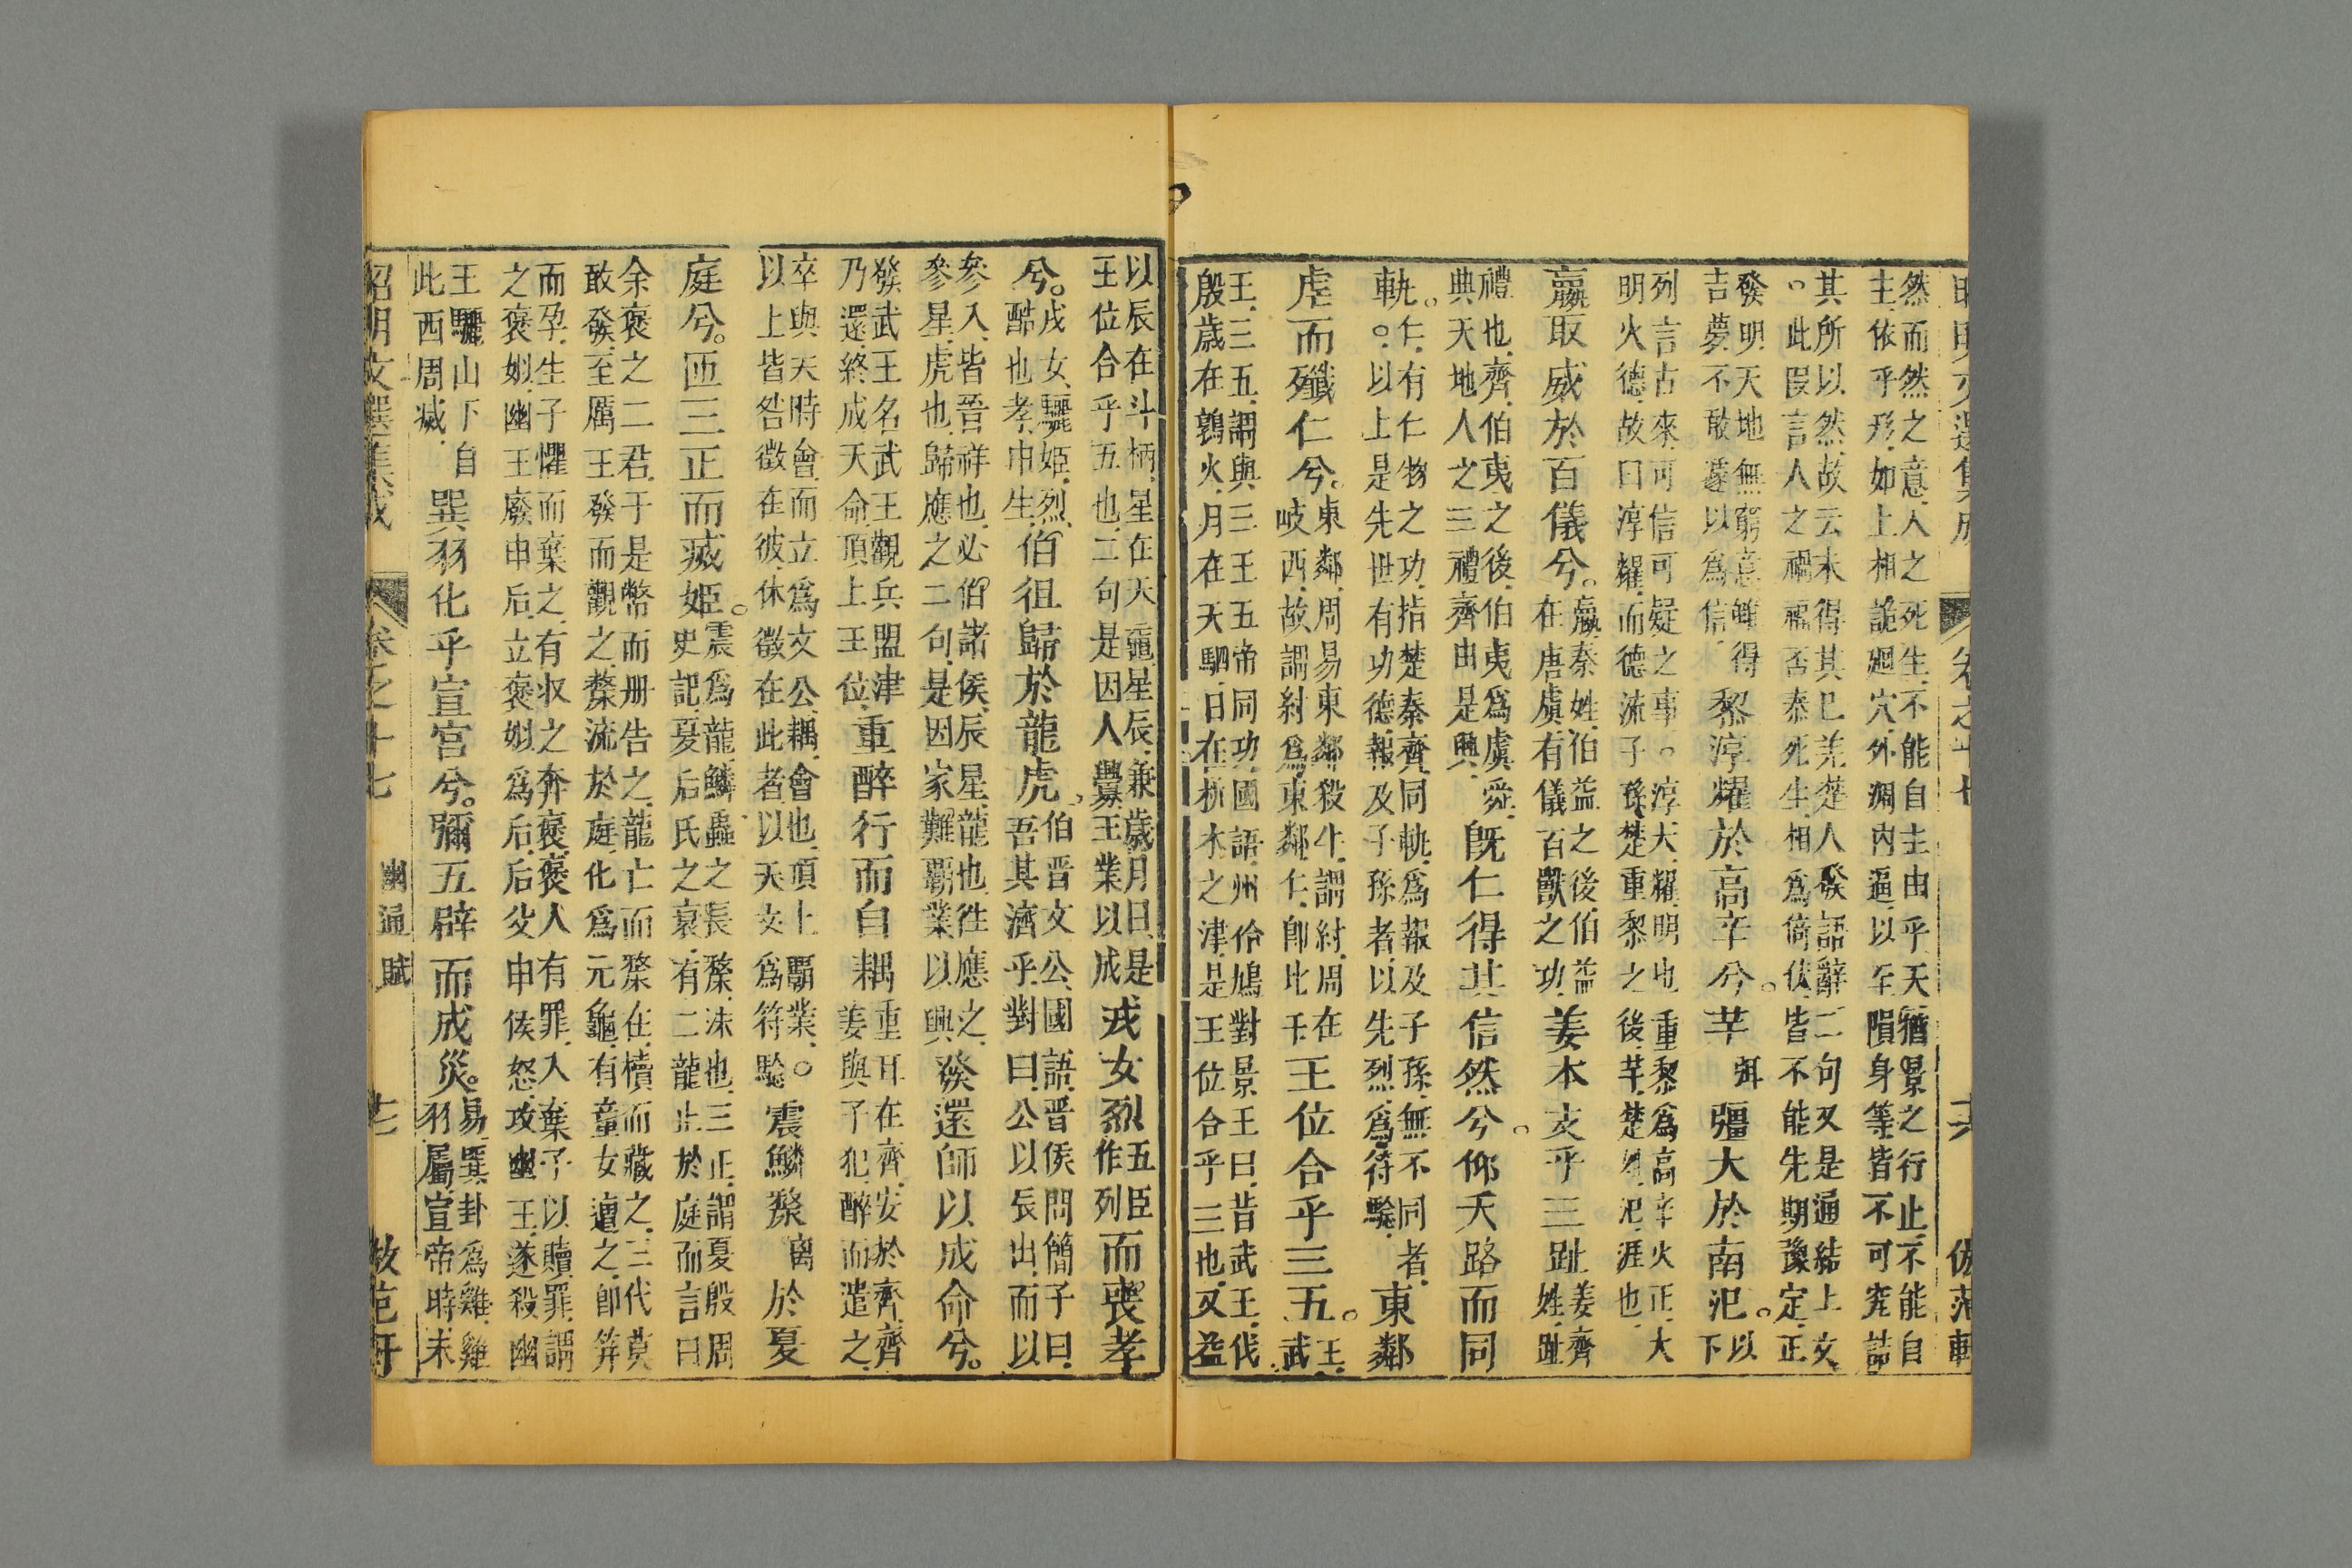 昭明文選集成 卷之十七 六 倣范軒
然而然之意人之死生不能自主由乎天猶景之行止不能自
主依乎形如上相詭廻穴外凋內逼以至隕身等皆不可究詰
其所以然故云未得其巳羌楚人發語辭二句又是通結上文
此叚言人之禍福否泰死生相為倚伏皆不能先期豫定正
發明天地無窮意鮮得
吉夢不敢遂以為信
黎淳耀於高辛兮芉弭彊大於南汜以下
列言古來可信可疑之事淳大耀明也重黎為高辛火正大
明火德故曰淳耀而德流子孫楚重黎之後芉楚姓汜涯也
嬴取威於百儀兮嬴秦姓伯益之後伯益
在唐虞有儀百獸之功
姜本支乎三趾姜齊
姓趾
禮也齊伯夷之後伯夷為虞舜
典天地人之三禮齊由是興
既仁得其信然兮仰天路而同
軌仁有仁物之功指楚秦齊同軌為報及子孫無不同者
以上是先世有功德報及子孫者以先烈為符驗
東鄰
虐而殲仁兮東鄰周易東鄰殺牛謂紂周在
岐西故謂紂為東鄰仁即比干
王位合乎三五王
武
王三五謂與三王五帝同功國語州伶鳩對景王曰昔武王伐
殷歲在鶉火月在天駟日在析木之津是王位合乎三也又益
以辰在斗柄星在天黿星辰兼歲月日是
王位合乎五也二句是因人釁王業以成
戎女烈作列五臣而喪孝
兮戎女驪姬烈
酷也孝申生
伯徂歸於龍虎伯晋文公國語晋侯問簡子曰
吾其濟乎對曰公以辰出而以
參入皆晉祥也必伯諸侯辰星龍也徃應之
參星虎也歸應之二句是因家難覇業以興
發還師以成命兮
發武王名武王觀兵盟津
乃還終成天命頂上王位
重醉行而自耦重耳在齊安於齊齊
姜與子犯醉而遣之
卒與天時會而立為文公耦會也頂上覇業
以上皆咎徵在彼休徵在此者以天女為符驗
震鱗漦离於夏
庭兮匝三正而㓕姬震為龍鱗蟲之長漦沫也三正謂夏殷周
史記夏后氏之衰有二龍止於庭而言曰
余褒之二君于是幣而册告之龍亡而漦在櫝而藏之三代莫
敢發至厲王發而觀之漦流於庭化為元龜有童女遭之卽笄
而孕生子懼而棄之有收之奔褒褒人有罪入棄子以贖罪謂
之褒姒幽王廢申后立褒姒為后后父申侯怒攻幽王遂殺幽
王驪山下自
此西周㓕
巽羽化乎宣宮兮彌五辟而成災易巽卦為雞雞
羽屬宣帝時未
昭明文選集成 卷之十七 幽通賦 七 倣范軒